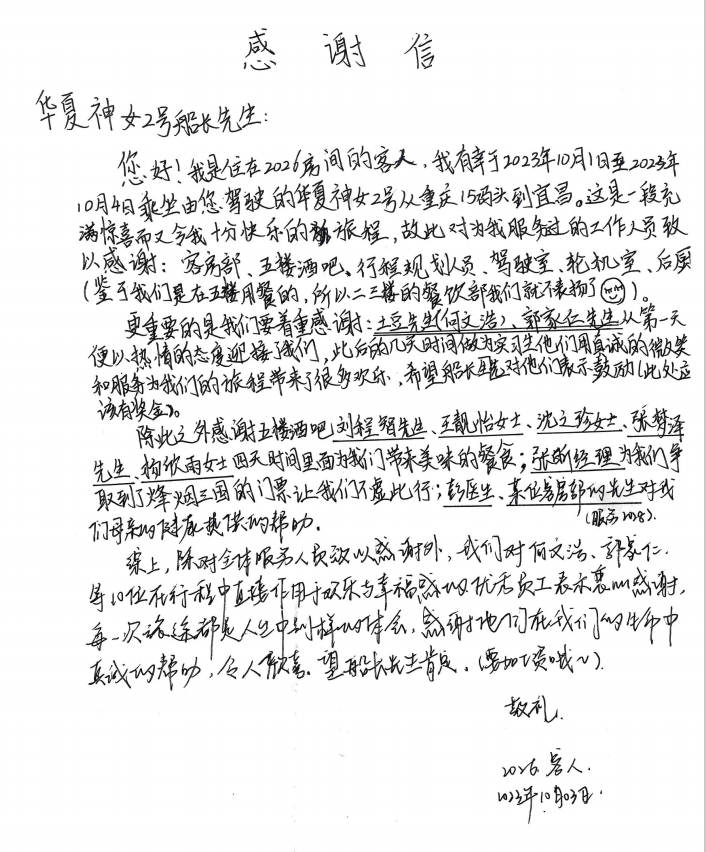 感谢信
华夏神女2号船长先生：
您好！我是住在2026房间的客人，我有幸于2023年10月1日至2023年
10月4日乘坐由您驾驶的华夏神女2号从重庆15码头到宜昌。这是一段充
满惊喜而又令我十分快乐的旅程，故此对为我服务过的工作人员致
以感谢：客房部、五楼酒吧、行程规划人员、驾驶室、轮机室、后厨
（鉴于我们是在五楼用餐的，所以二三楼的餐饮部我们就不表扬了）。
更重要的是我们要着重感谢：土豆先生（何文浩）、郭家仁先生从第一天
便以热情的态度迎接了我们，此后的几天时间做为实习生他们用真诚的微笑
和服务为我们的旅程带来了很多欢乐，希望船长对他们表示鼓励（此处应
该有奖金）。
除此之外感谢五楼酒吧刘程智先生、王靓怡女士、沈之珍女士、张梦泽
先生、雨女士四天时间里面为我们带来美味的餐食；张昕经理为我们争
取到了烽烟三国的门票让我们不虚此行；彭医生、某位客房部的先生对我
们母亲的健康提供的帮助。
（服务2028）
综上，除对全体服务人员致以感谢外，我们对何文浩、郭家仁
等10位在行程中直接作用于欢乐与幸福感的优秀员工表示衷心感谢，
每一次旅途都是人生中别样的体会，感谢他们在我们的生命中
真诚的帮助，令人欣喜。望船长先生肯定。（要加工资哦～）
敬礼
2026客人
2023年10月03日